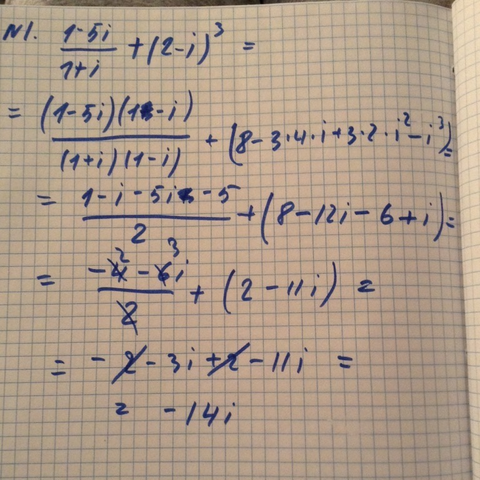 N1. (1-5i)/(1+i) + (2-i)^3 =
= ((1-5i)(1-i))/((1+i)(1-i)) + (8-3·4·i+3·2·i^2-i^3)=
= (1-i-5i-5)/2 + (8-12i-6+i)=
= (-4-6i)/2 + (2-11i) =
2 3
= -2-3i+2-11i =
= -14i